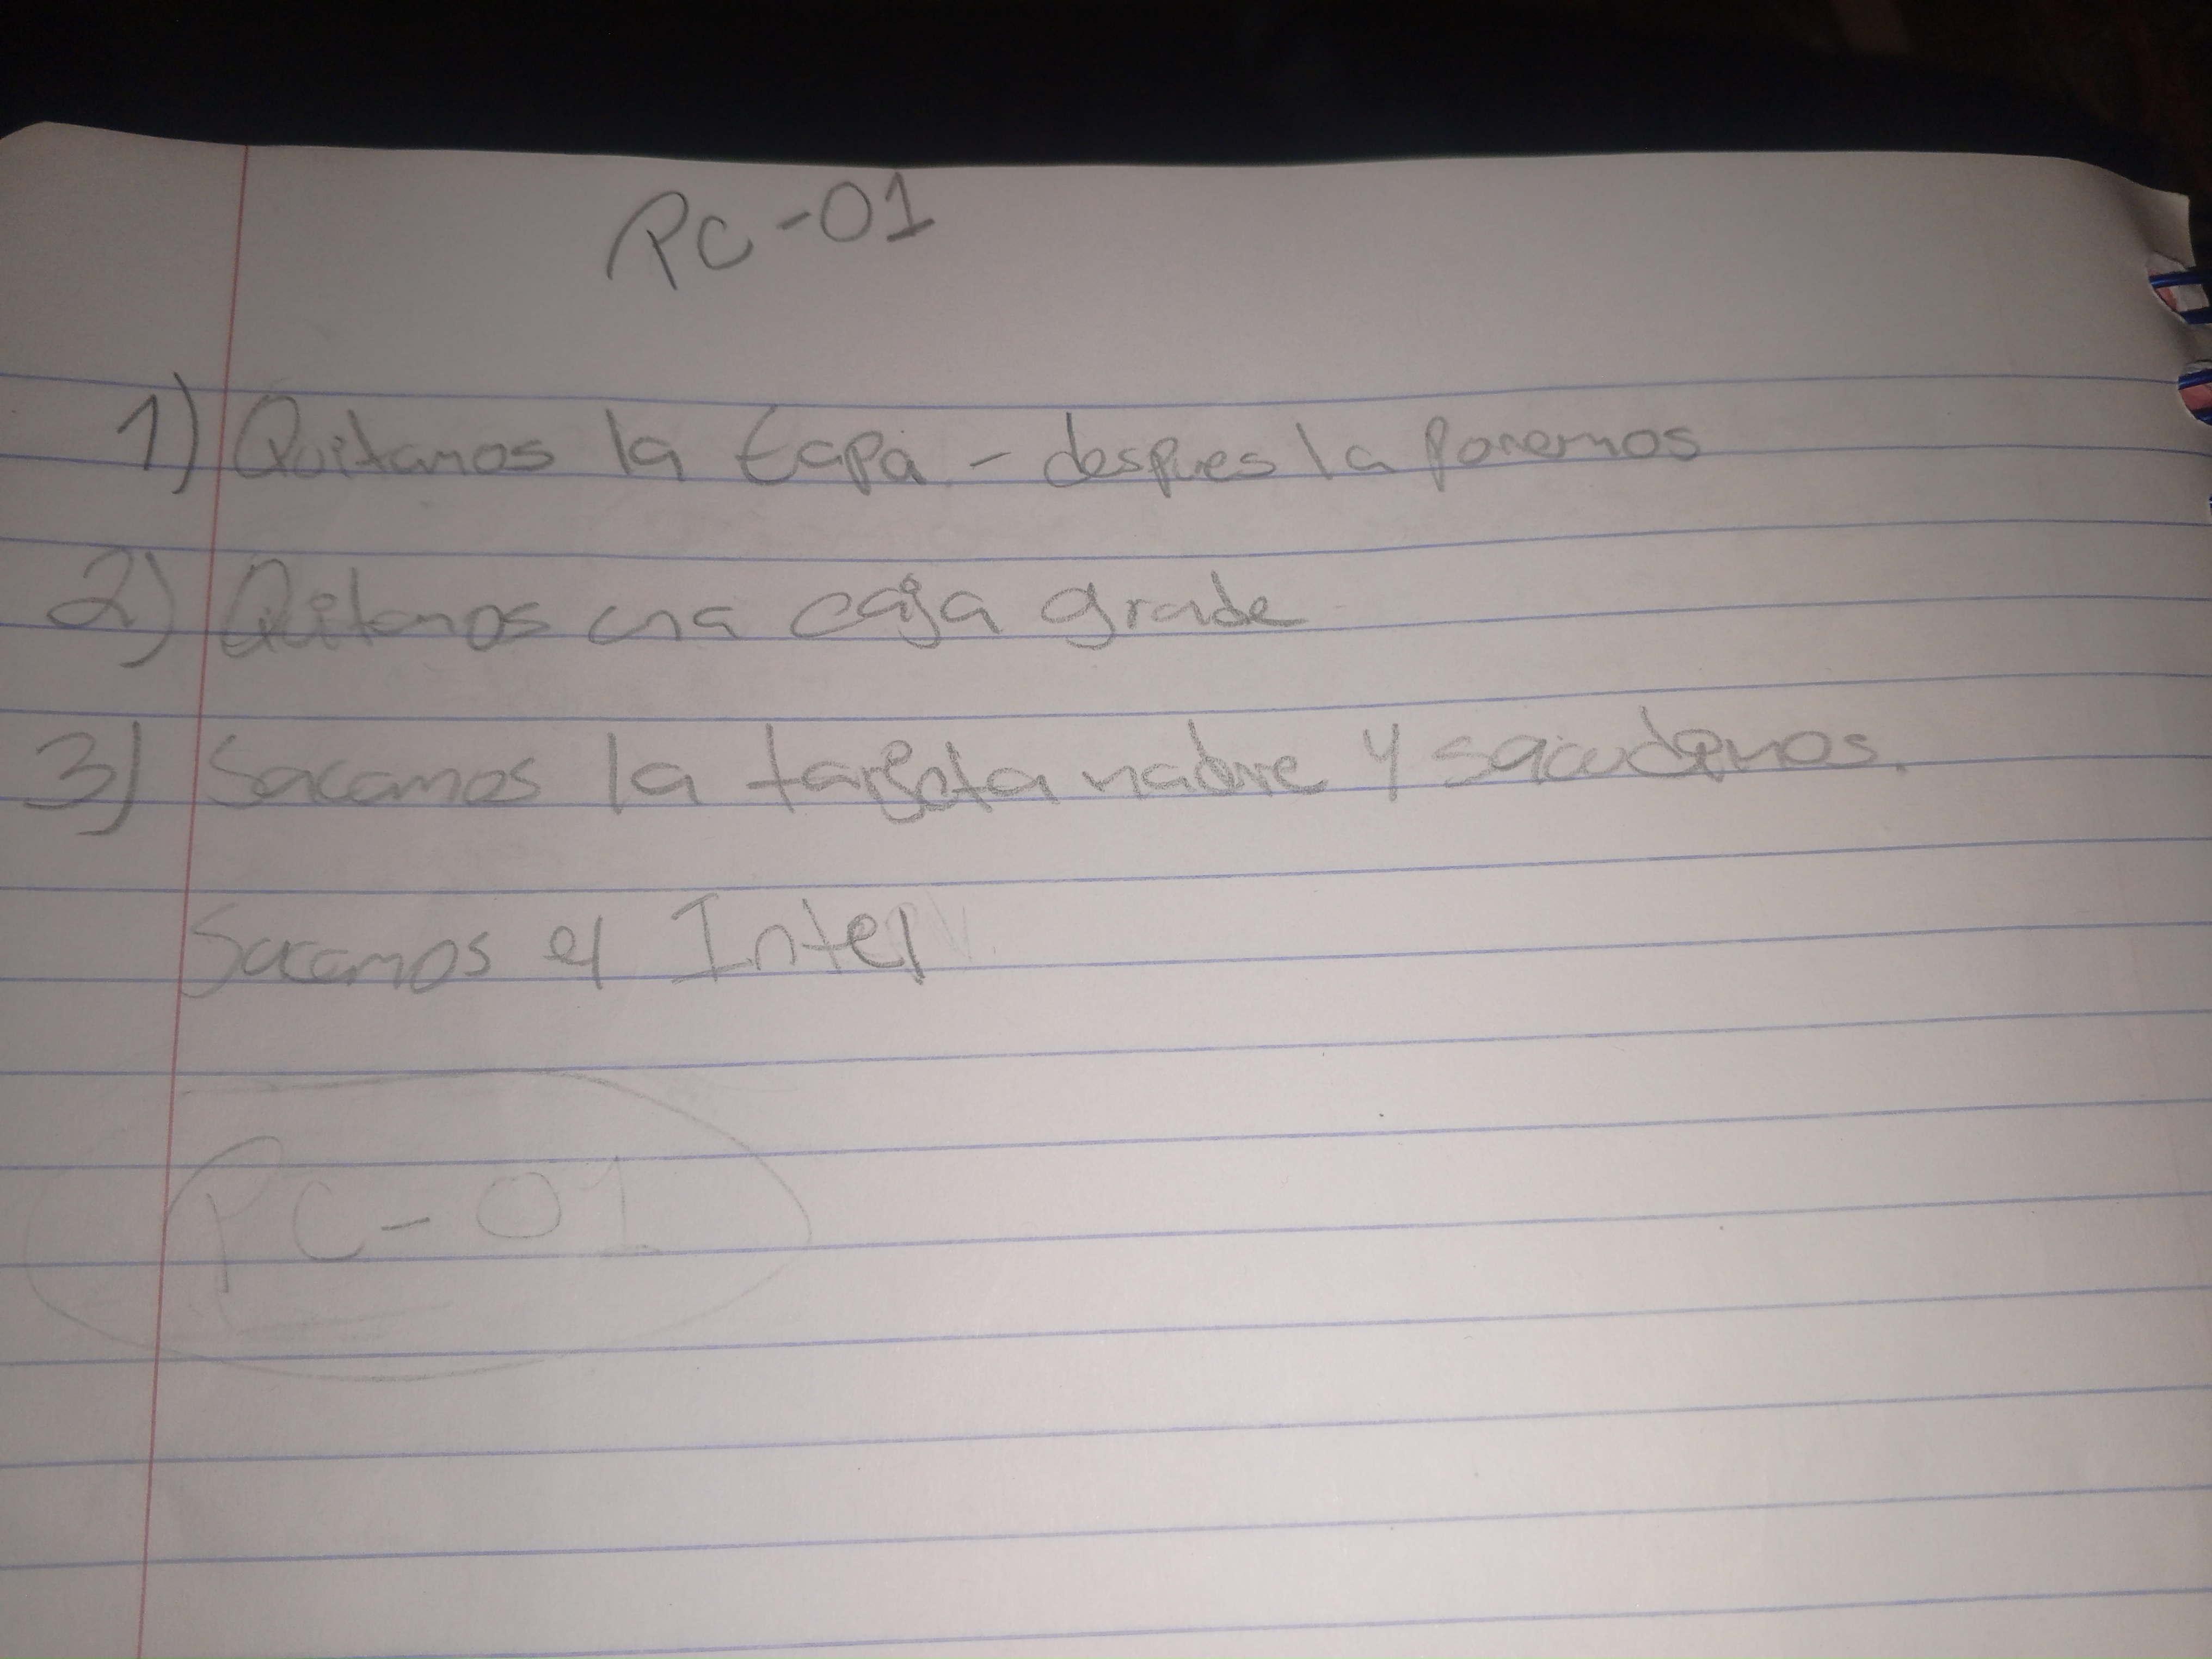 PC-01
1) Quitamos la tapa - despues la ponemos
2) Quitamos una caja grade
3) Sacamos la tarjeta madre y sacudemos.
Sacamos el Intel
PC-01